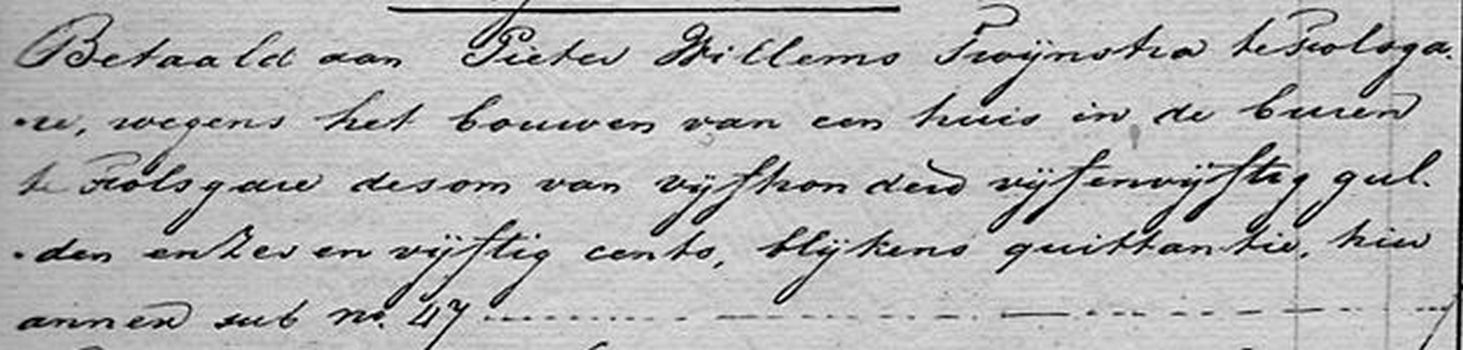 Betaald aan Pieter Willems Twijnstra te Rolsga.
.re, wegens het bouwen van een huis in de buren
te Rolsgare de som van vijfhonderd vijfenvijftig gul.
.den en zes en vijftig cents, blijkens quittantie, hier
annex sub no. 47